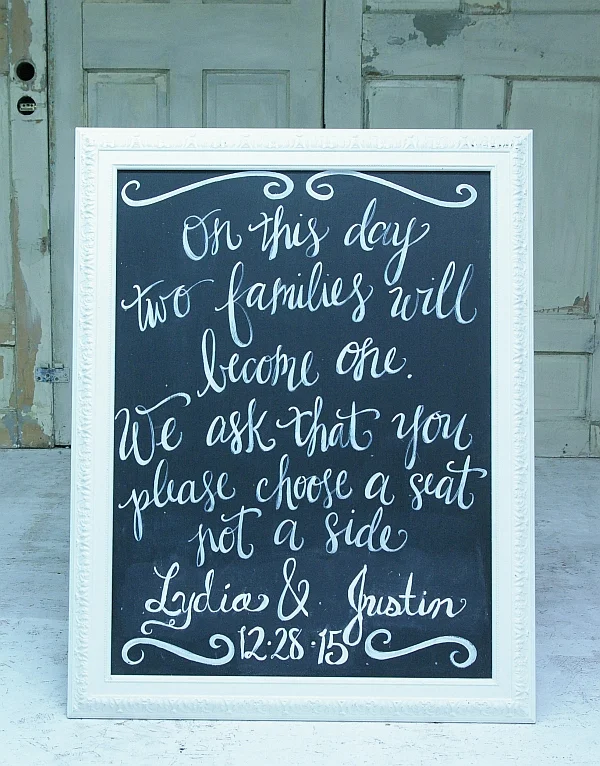 On this day
two families will
become one.
We ask that you
please choose a seat
not a side
Lydia & Justin
12·28·15